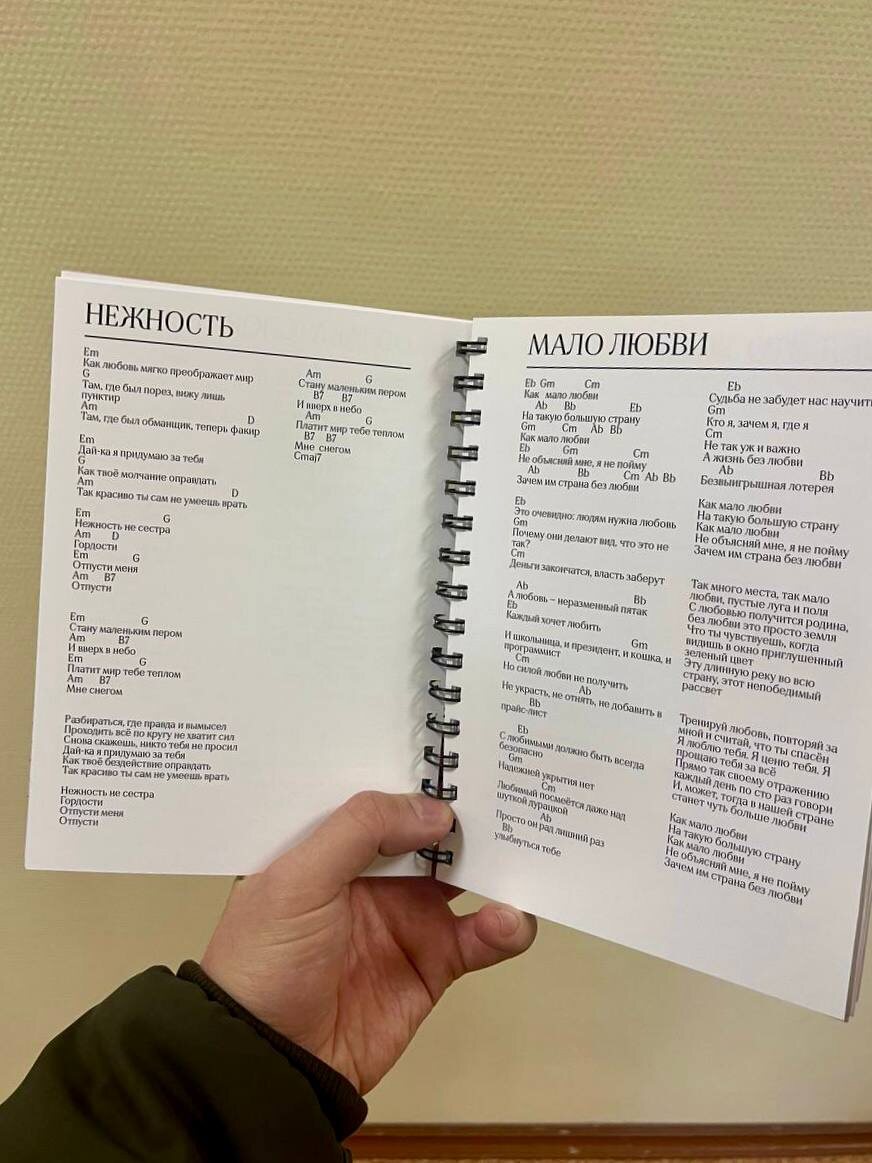 НЕЖНОСТЬ
Em
Как любовь мягко преображает мир
G
Там, где был порез, вижу лишь
пунктир
Am D
Там, где был обманщик, теперь факир
Em
Дай-ка я придумаю за тебя
G
Как твоё молчание оправдать
Am D
Так красиво ты сам не умеешь врать
Em G
Нежность не сестра
Am D
Гордости
Em G
Отпусти меня
Am B7
Отпусти
Em G
Стану маленьким пером
Am B7
И вверх в небо
Em G
Платит мир тебе теплом
Am B7
Мне снегом
Разбираться, где правда и вымысел
Проходить всё по кругу не хватит сил
Снова скажешь, никто тебя не просил
Дай-ка я придумаю за тебя
Как твоё бездействие оправдать
Так красиво ты сам не умеешь врать
Нежность не сестра
Гордости
Отпусти меня
Отпусти
Am G
Стану маленьким пером
B7 B7
И вверх в небо
Am G
Платит мир тебе теплом
B7 B7
Мне снегом
Cmaj7
МАЛО ЛЮБВИ
Eb Gm Cm
Как мало любви
Ab Bb Eb
На такую большую страну
Gm Cm Ab Bb
Как мало любви
Eb Gm Cm
Не объясняй мне, я не пойму
Ab Bb Cm Ab Bb
Зачем им страна без любви
Eb
Это очевидно: людям нужна любовь
Gm
Почему они делают вид, что это не
так?
Cm
Деньги закончатся, власть заберут
Ab Bb
А любовь – неразменный пятак
Eb
Каждый хочет любить
Gm
И школьница, и президент, и кошка, и
программист
Cm
Но силой любви не получить
Ab
Не украсть, не отнять, не добавить в
Bb
прайс-лист
Eb
С любимыми должно быть всегда
безопасно
Gm
Надежней укрытия нет
Cm
Любимый посмеётся даже над
шуткой дурацкой
Ab
Просто он рад лишний раз
Bb
улыбнуться тебе
Eb
Судьба не забудет нас научить
Gm
Кто я, зачем я, где я
Cm
Не так уж и важно
А жизнь без любви
Ab Bb
Безвыигрышная лотерея
Как мало любви
На такую большую страну
Как мало любви
Не объясняй мне, я не пойму
Зачем им страна без любви
Так много места, так мало
любви, пустые луга и поля
С любовью получится родина,
без любви это просто земля
Что ты чувствуешь, когда
видишь в окно приглушенный
зеленый цвет
Эту длинную реку во всю
страну, этот непобедимый
рассвет
Тренируй любовь, повторяй за
мной и считай, что ты спасён
Я люблю тебя. Я ценю тебя. Я
прощаю тебя за всё
Прямо так своему отражению
каждый день по сто раз говори
И, может, тогда в нашей стране
станет чуть больше любви
Как мало любви
На такую большую страну
Как мало любви
Не объясняй мне, я не пойму
Зачем им страна без любви